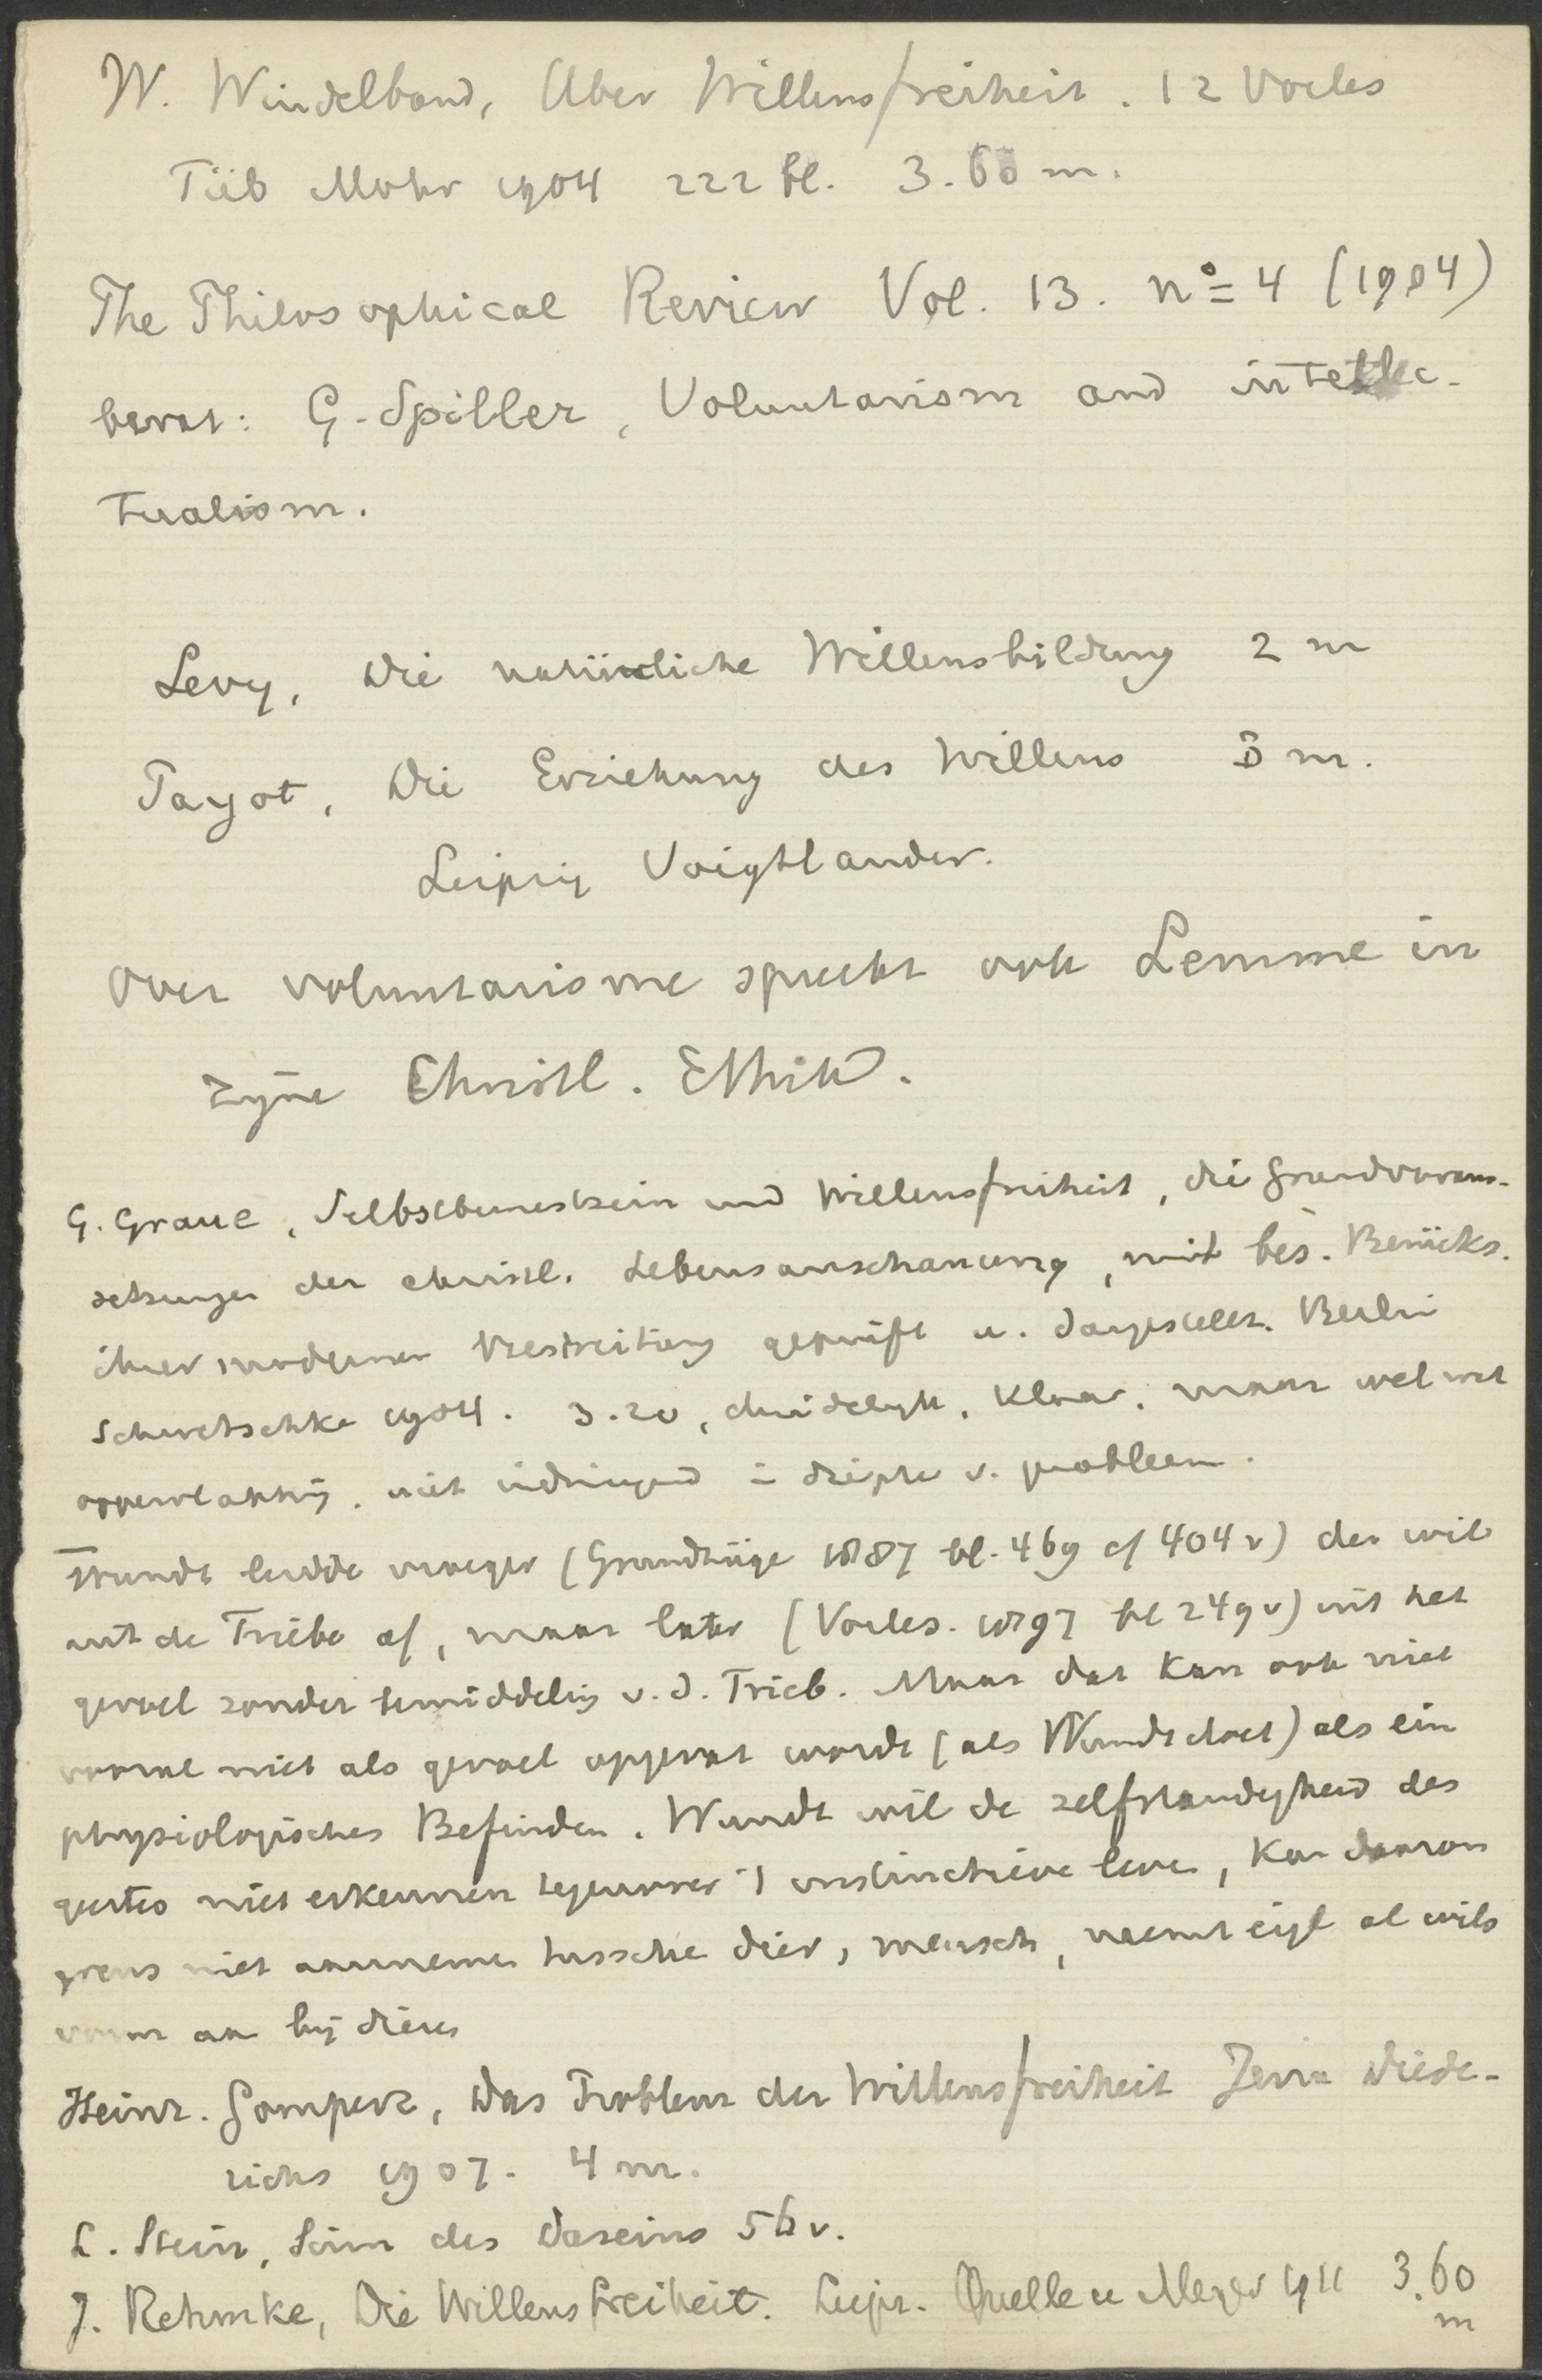 W. Windelband, Über Willensfreiheit. 12 Vorles
Tüb Mohr 1904 222 bl. 3.60 m.
The Philosophical Review Vol. 13. nº 4 (1904)
bevat: G. Spiller, Voluntarism and intellec-
tualism.
Levy, Die natürliche Willensbildung 2 m
Payot, Die Erziehung des Willens 3 m.
Leipzig Voigtlander.
Over voluntarisme spreekt ook Lemme in
zijne Christl. Ethik.
G. Graue, Selbstbewustsein und Willensfreiheit, die Grundvoraus-
setzungen der christl. Lebensanschauung, mit bes. Berücks.
ihrer modernen Bestreitung geprüft u. dargestellt. Berlin
Schwetschke 1904. 3.20, duidelijk, klaar, maar wel wat
oppervlakkig, niet indringend in diepte v. probleem.
Wundt leidde vroeger (Grundzüge 1887 bl. 469 cf 404 v) den wil
uit de Triebe af, maar later (Vorles. 1897 bl 249 v) uit het
gevoel zonder bemiddeling v. d. Trieb. Maar dat kan ook niet
vooral niet als gevoel opgevat wordt (als Wundt doet) als ein
physiologisches Befinden. Wundt wil de zelfstandigheid des
geestes niet erkennen tegenover 't instinctieve leven, kan daarom
grens niet aannemen tussche dier, mensch, neemt eigl al wils
vorm aan bij dieren
Heinr. Gomperz, Das Problem der Willensfreiheit Jena Diede-
richs 1907. 4 m.
L. Stein, Sinn des Daseins 56 v.
J. Rehmke, Die Willensfreiheit. Leipz. Quelle u Meyer 1911 3.60
m